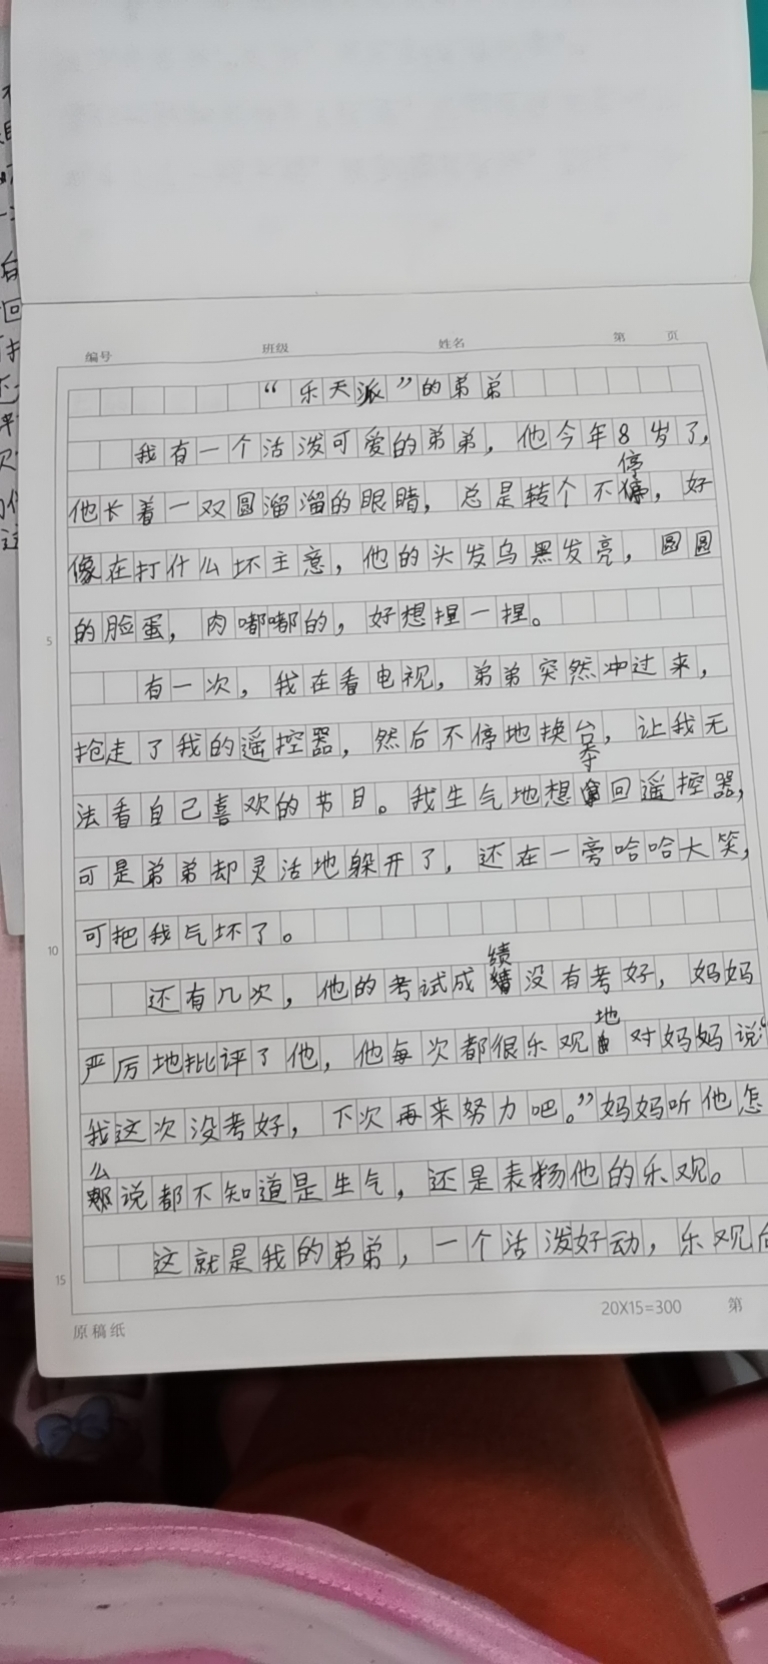 编号 班级 姓名 第 页
“乐天派”的弟弟
我有一个活泼可爱的弟弟，他今年8岁了，
他长着一双圆溜溜的眼睛，总是转个不停，好
像在打什么坏主意，他的头发乌黑发亮，圆圆
的脸蛋，肉嘟嘟的，好想捏一捏。
5
有一次，我在看电视，弟弟突然冲过来，
抢走了我的遥控器，然后不停地换台，让我无
法看自己喜欢的节目。我生气地想夺回遥控器，
可是弟弟却灵活地躲开了，还在一旁哈哈大笑，
可把我气坏了。
10
还有几次，他的考试成绩没有考好，妈妈
严厉地批评了他，他每次都很乐观地对妈妈说“
我这次没考好，下次再来努力吧。”妈妈听他怎
么说都不知道是生气，还是表扬他的乐观。
这就是我的弟弟，一个活泼好动，乐观
15
原稿纸 20X15=300 第